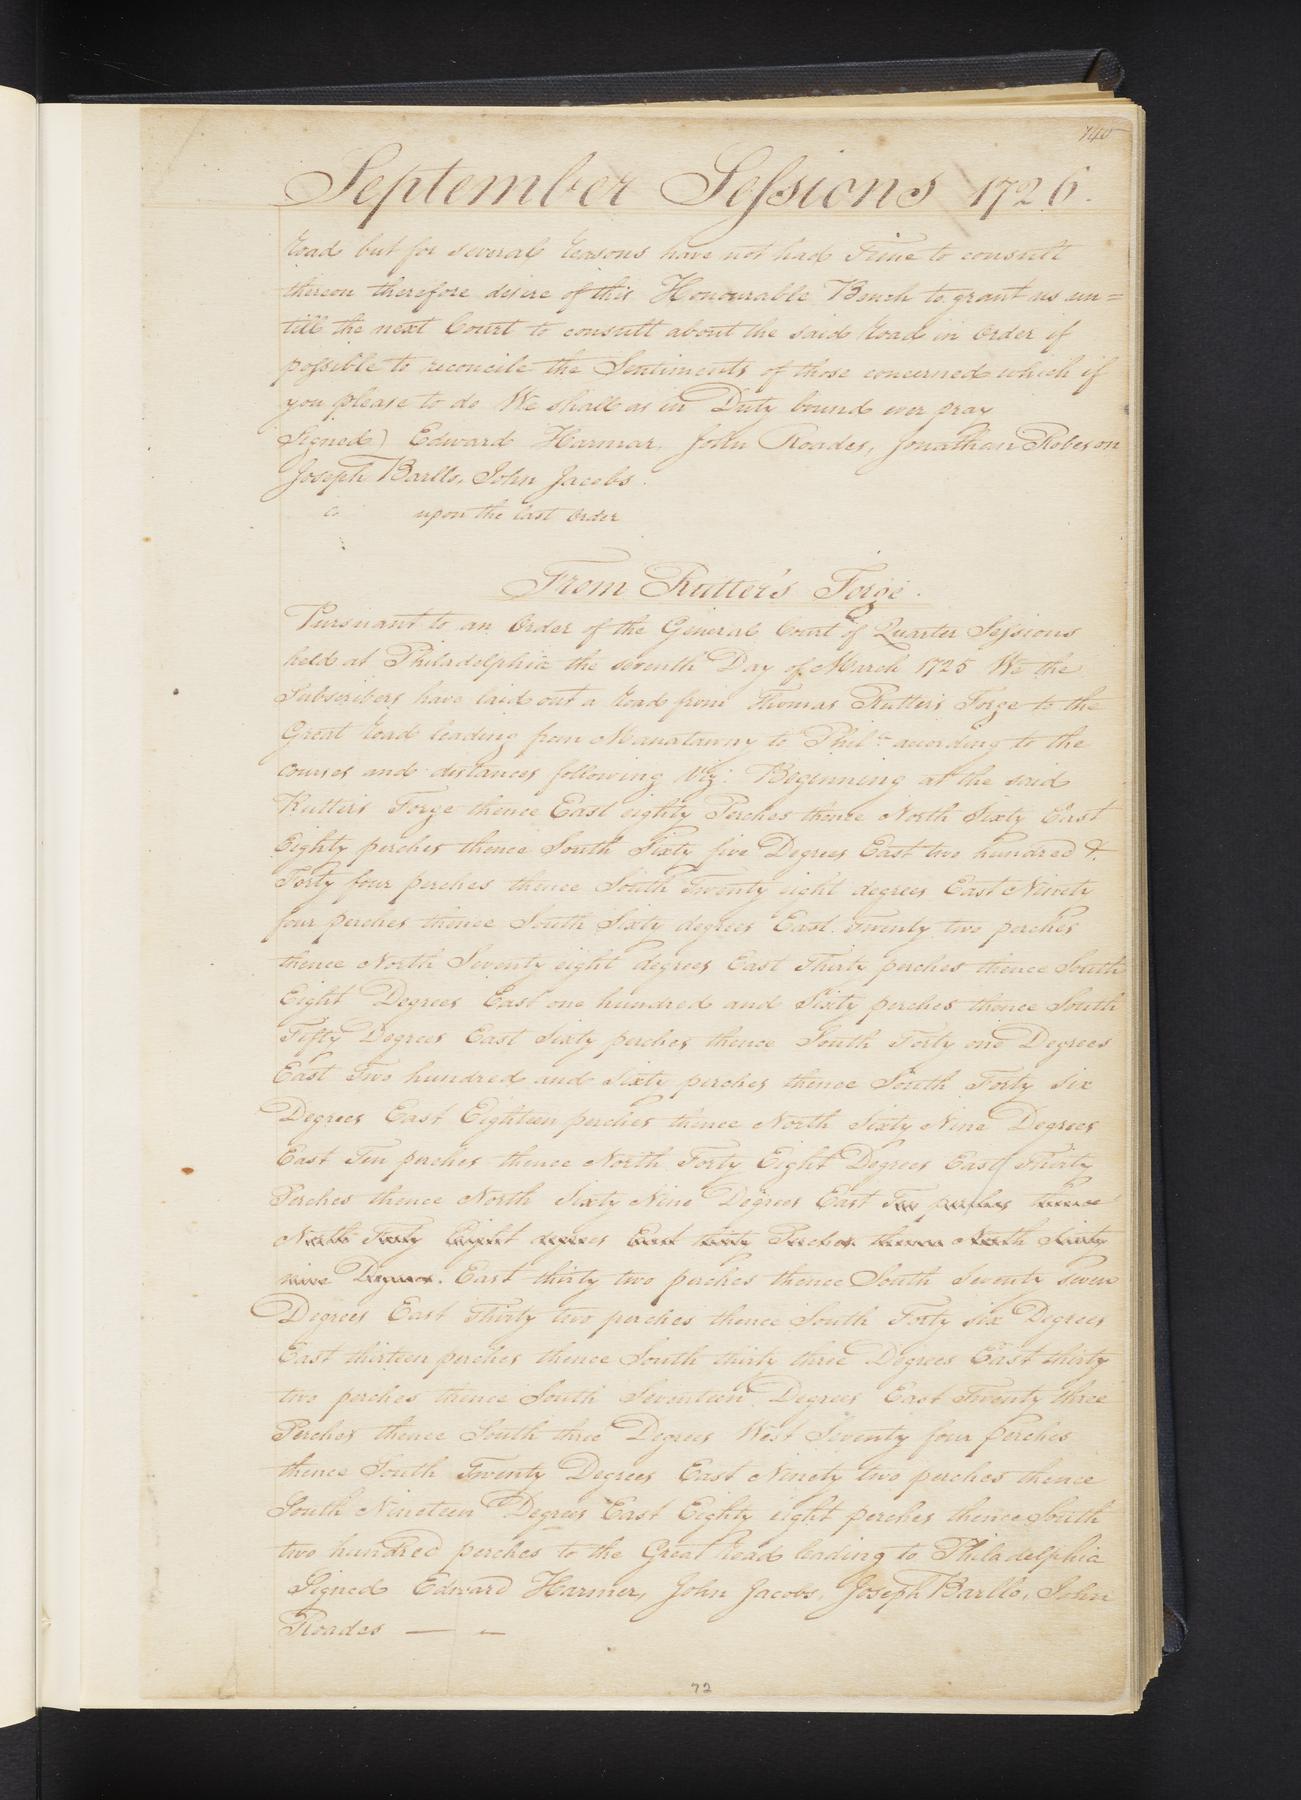 740
September Sessions 1726.
road but for several reasons have not had Time to consult
thereon therefore desire of this Honourable Bench to grant us un=
till the next Court to consult about the said road in Order if
possible to reconcile the Sentiments of those concerned which if
you please to do We shall as in Duty bound ever pray
Signed) Edward Harmar. John Roades, Jonathan Robeson
Joseph Barllo, John Jacobs.
upon the last Order
From Rutter's Forge.
Pursuant to an Order of the General Court of Quarter Sessions
held at Philadelphia the seventh Day of March 1725 We the
Subscribers have laid out a road from Thomas Rutter's Forge to the
Great road leading from Manatawny to Phila. acording to the
courses and distances following Viz: Beginning at the said
Rutter's Forge thence East eighty Perches thence North Sixty East
Eighty perches thence South Sixty five Degrees East two hundred &
Forty four perches thence South Twenty eight degrees East Ninety
four perches thence South Sixty degrees East. Twenty two perches
thence North Seventy eight degrees East Thirty perches thence South
Eight Degrees East one hundred and Sixty perches thence South
Fifty Degrees East Sixty perches thence South Forty one Degrees
East Two hundred and Sixty perches thence South Forty six
Degrees East Eighteen perches thence North Sixty Nine Degrees
East Ten perches thence North Forty Eight Degrees East Thirty
Perches thence North Sixty Nine Degrees East Ten perches thence
North Forty Eight degrees East thirty Perches thence North Sixty
nine Degrees. East thirty two perches thence South Seventy Seven
Degrees East Thirty two perches thence South Forty six Degrees
East thirteen perches thence South thirty three Degrees East thirty
two perches thence South Seventeen Degrees East Twenty three
Perches thence South three Degrees West Seventy four perches
thence South Twenty Degrees East Ninety two perches thence
South Nineteen Degrees East Eighty eight perches thence South
two hundred perches to the Great road leading to Philadelphia
Signed Edward Harmer, John Jacobs, Joseph Barllo, John
Roades — –
72